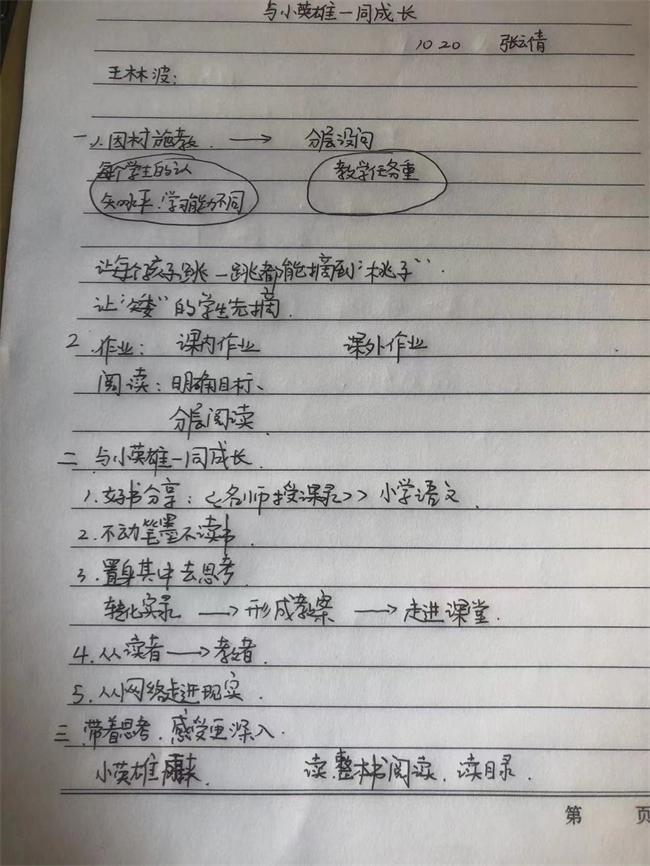 与小英雄一同成长
10.20 张云倩
王林波:
一 1.因材施教. → 分层设问
每个学生的认 教学任务重
知水平.学习能力不同
让每个孩子跳一跳都能摘到“桃子”.
让“矮”的学生先摘.
2 作业: 课内作业 课外作业
阅读:明确目标、
分层阅读.
二 与小英雄一同成长.
1.好书分享:<<名师授课录>>小学语文.
2.不动笔墨不读书.
3.置身其中去思考.
转化实录 → 形成教案 → 走进课堂.
4.从读者 → 教者.
5.从网络走进现实.
三 带着思考.感受更深入.
小英雄雨来 读.整本书阅读.读目录.
第 页